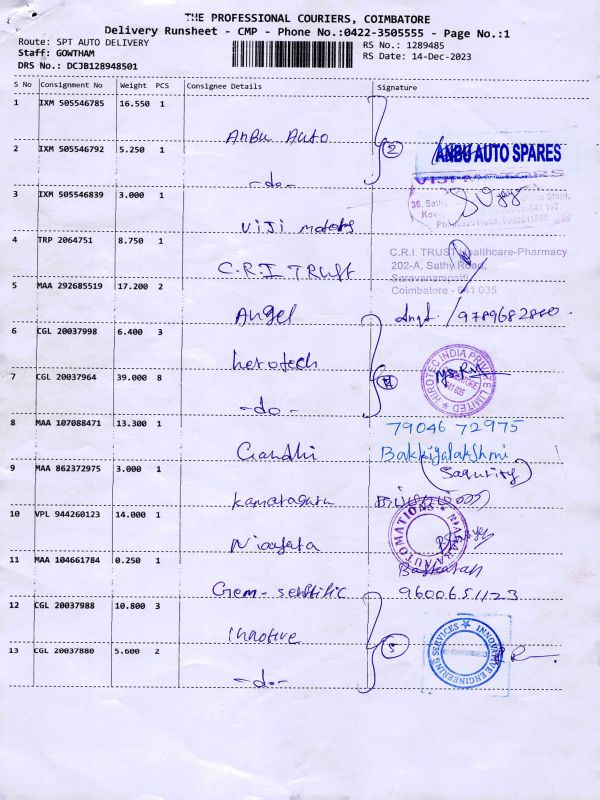 THE PROFESSIONAL COURIERS, COIMBATORE
Delivery Runsheet - CMP - Phone No.:0422-3505555 - Page No.:1
Route: SPT AUTO DELIVERY
RS No.: 1289485
Staff: GOWTHAM
RS Date: 14-Dec-2023
DRS No.: DCJB128948501
S No Consignment No Weight PCS Consignee Details Signature
1 IXM 505546785 16.550 1
Anbu Auto
2 IXM 505546792 5.250 1 2 ANBU AUTO SPARES
-do-
3 IXM 505546839 3.000 1
VIJI motors
4 TRP 2064751 8.750 1
C.R.I. TRUST Healthcare-Pharmacy
202-A, Sathy Road,
Saravanampatti
Coimbatore - 641 035
C.R.I TRUST
5 MAA 292685519 17.200 2
Angel
6 CGL 20037998 6.400 3
herotech
HIROTEC INDIA PRIVATE LIMITED
7 CGL 20037964 39.000 8
-do-
8 MAA 107088471 13.300 1
79046 72975
Gandhi Bakkiyalakshmi
(Saqurity)
9 MAA 862372975 3.000 1
10 VPL 944260123 14.000 1
NIAGARA AUTOMATIONS
11 MAA 104661784 0.250 1
Baskaran
9600651123
12 CGL 20037988 10.800 3
INNOVATIVE ENGINEERING SERVICES
13 CGL 20037880 5.600 2 5
-do-